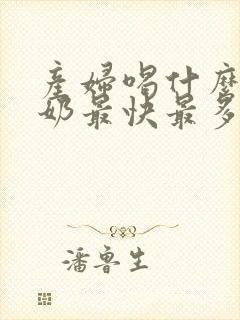 產婦喝什麼
奶最快最多
潘魯生